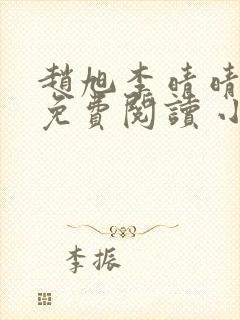 趙旭李晴晴
免費閱讀小
李振